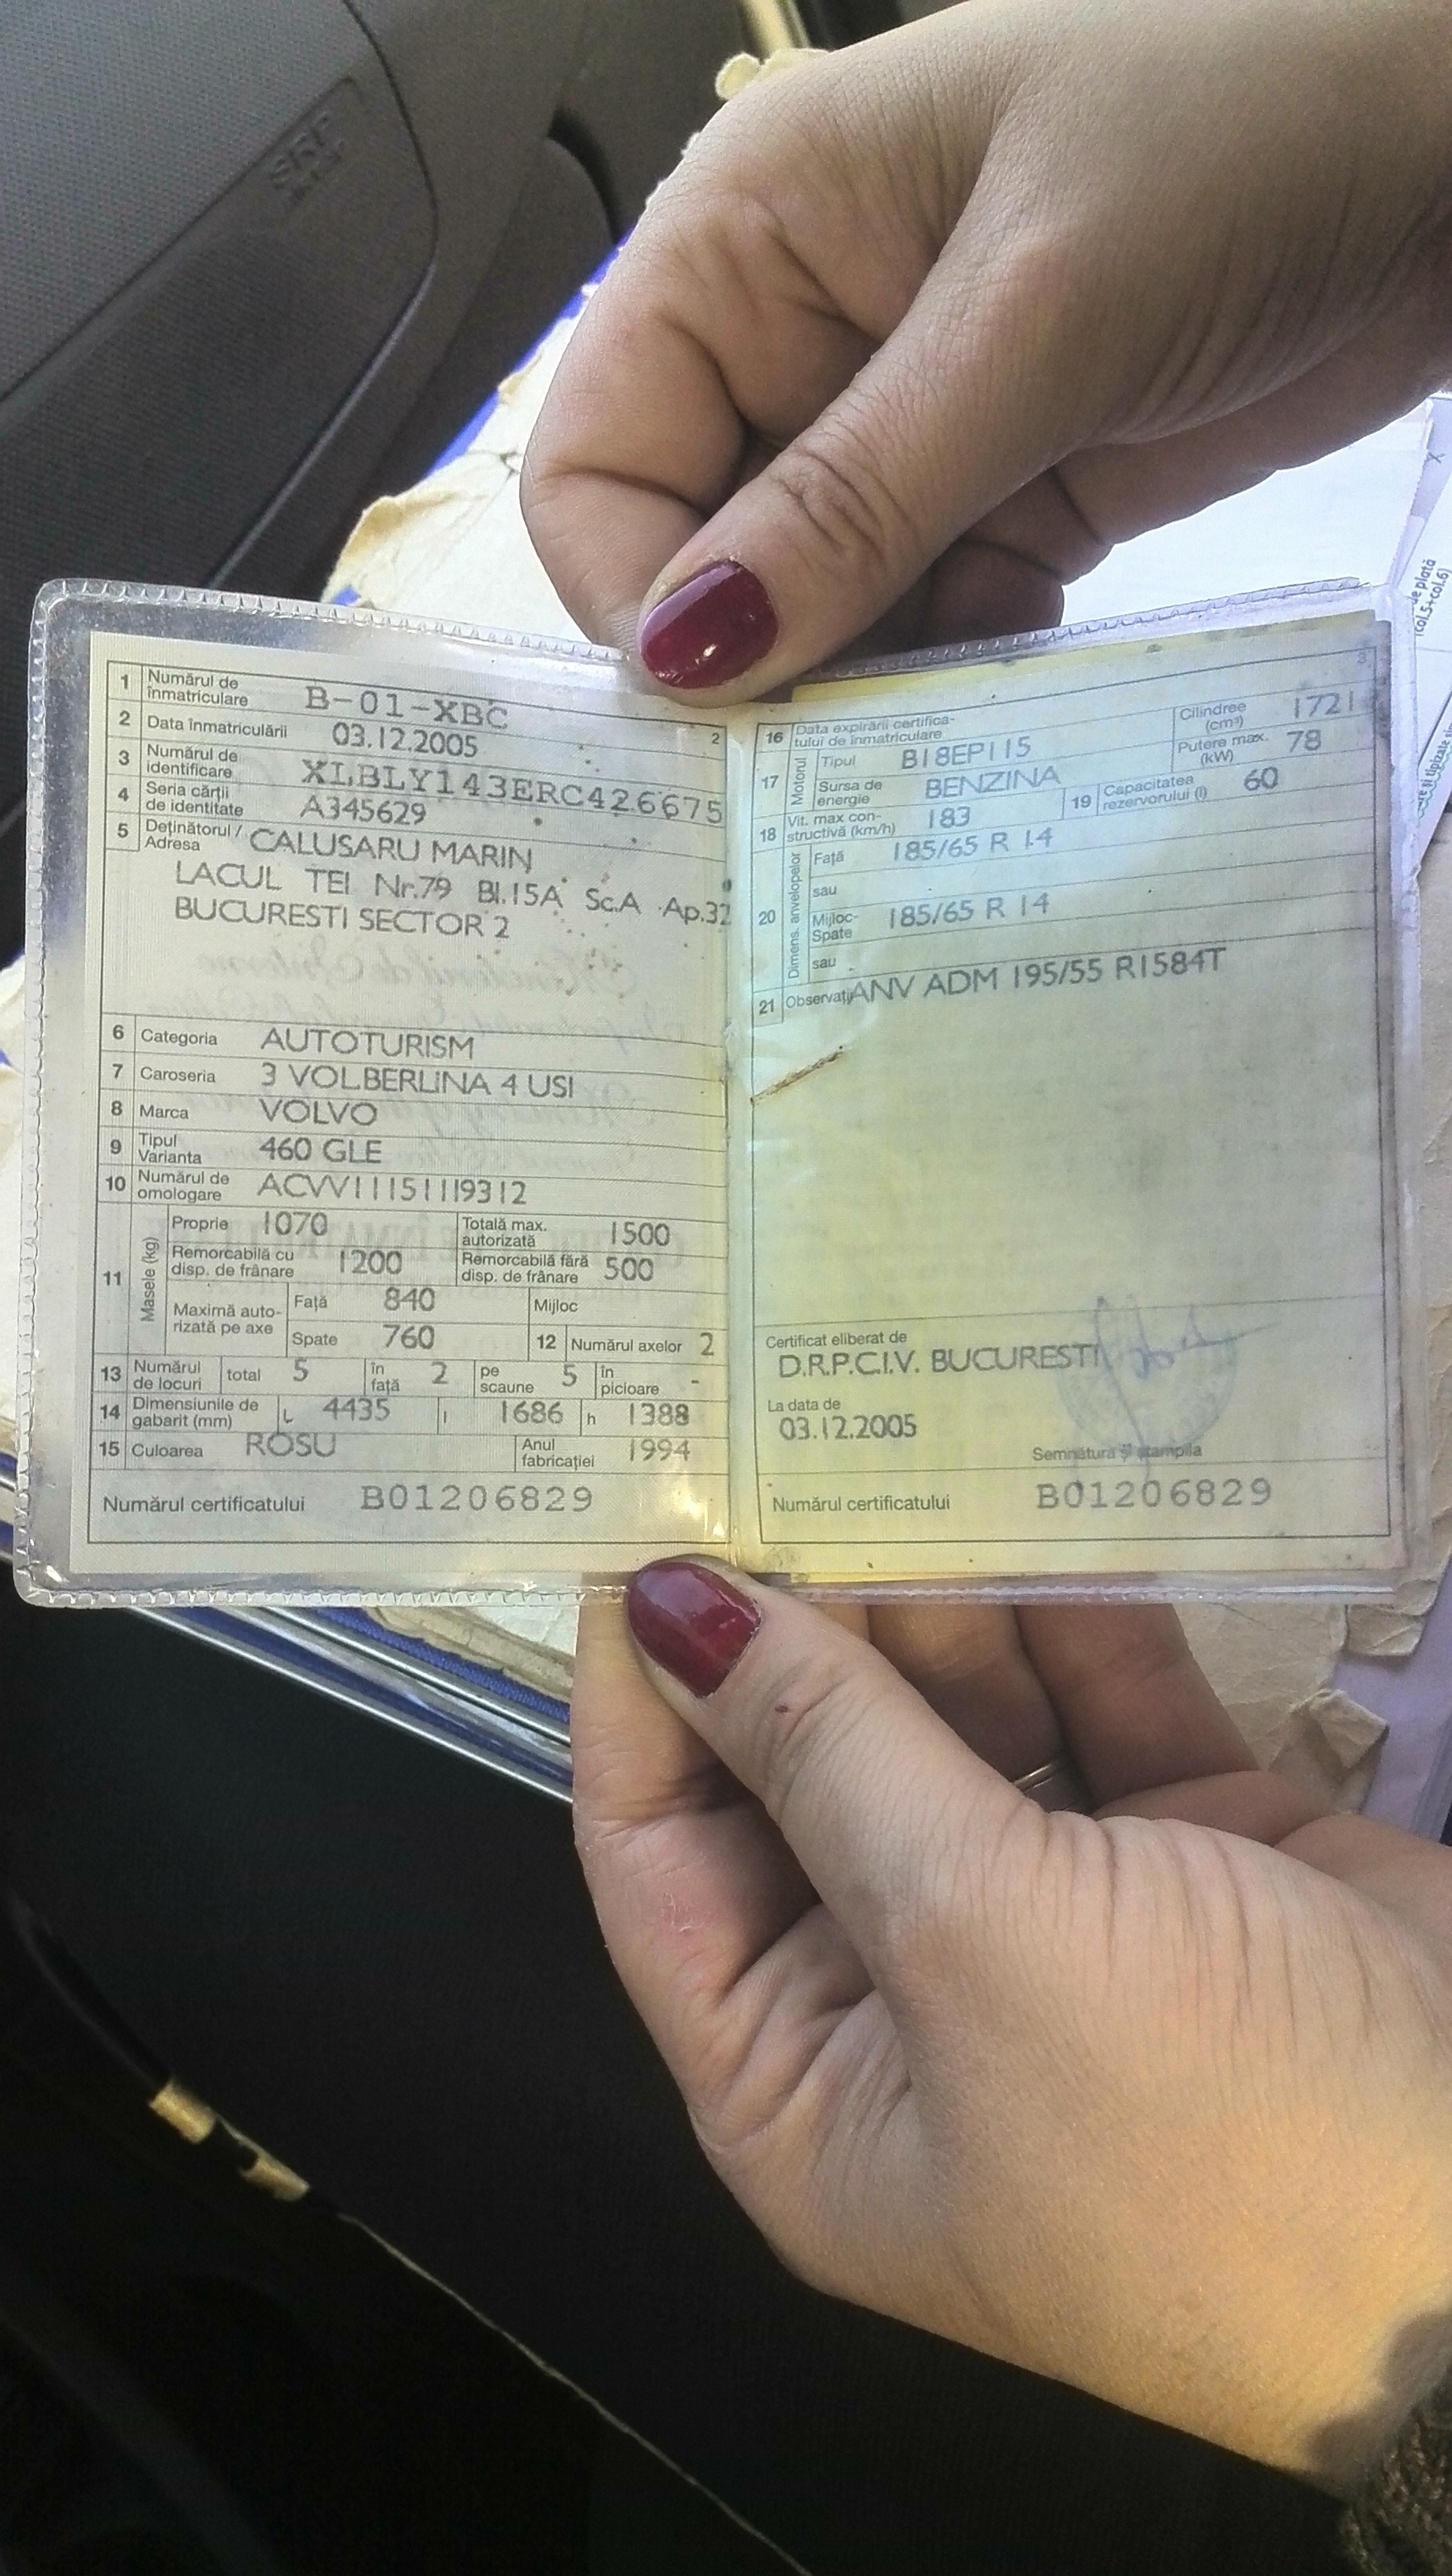 SRP
1 Numărul de înmatriculare B-01-XBC
2 Data înmatriculării 03.12.2005 2
3 Numărul de identificare XLBLY143ERC426675
4 Seria cărții de identitate A345629
5 Deținătorul / Adresa CALUSARU MARIN
LACUL TEI Nr.79 Bl.15A Sc.A Ap.32
BUCURESTI SECTOR 2
6 Categoria AUTOTURISM
7 Caroseria 3 VOLBERLINA 4 USI
8 Marca VOLVO
9 Tipul Varianta 460 GLE
10 Numărul de omologare ACVV111511119312
11 Masele (kg) Proprie 1070 Totală max. autorizată 1500
Remorcabilă cu disp. de frânare 1200 Remorcabilă fără disp. de frânare 500
Maximă autorizată pe axe Față 840 Mijloc
Spate 760 12 Numărul axelor 2
13 Numărul de locuri total 5 în față 2 pe scaune 5 în picioare -
14 Dimensiunile de gabarit (mm) L 4435 l 1686 h 1388
15 Culoarea ROSU Anul fabricației 1994
Numărul certificatului B01206829
3
16 Data expirării certificatului de înmatriculare
17 Motorul Tipul B18EP115 Cilindree (cm³) 1721
Sursa de energie BENZINA Putere max. (kW) 78
18 Vit. max constructivă (km/h) 183 19 Capacitatea rezervorului (l) 60
20 Dimens. anvelopelor Față 185/65 R 14
sau
Mijloc-Spate 185/65 R 14
sau
21 Observații ANV ADM 195/55 R1584T
Certificat eliberat de
D.R.P.C.I.V. BUCURESTI
La data de
03.12.2005
Semnătura și ștampila
Numărul certificatului B01206829
de plată
(col.5+col.6)